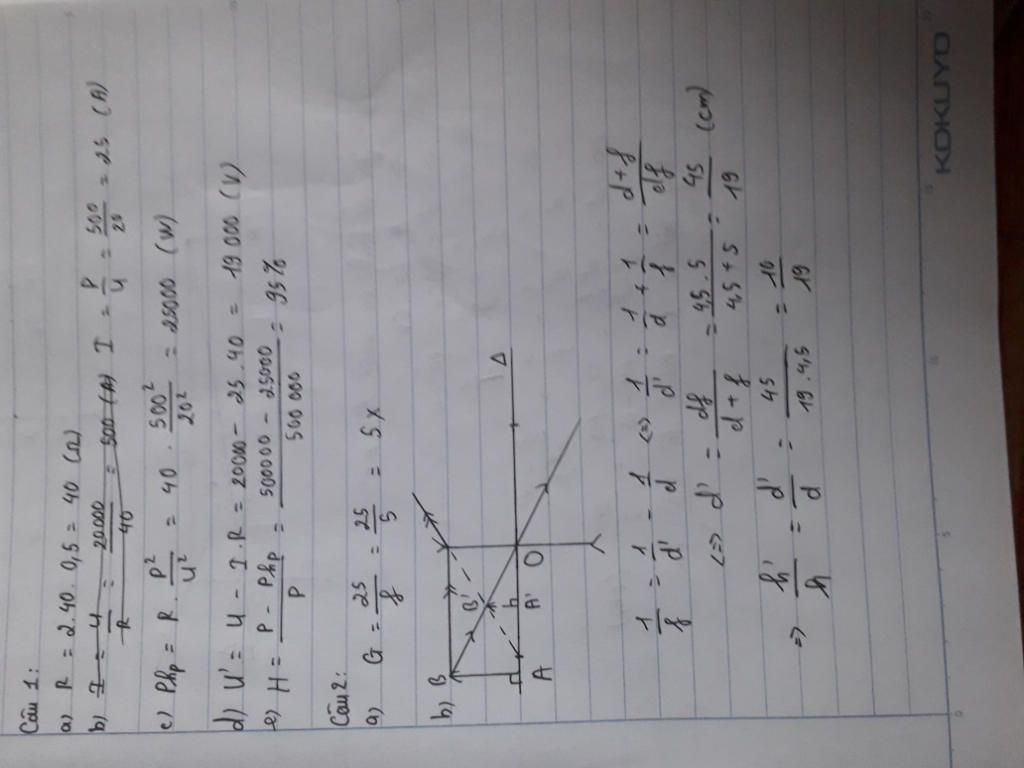 Câu 1:
a) R = 2.40.0,5 = 40 (Ω)
b) I = U/R = 20000/40 = 500 (A) I = P/U = 500/20 = 25 (A)
c) Php = R . P²/U² = 40 . 500²/20² = 25000 (W)
d) U' = U - I.R = 20000 - 25.40 = 19 000 (V)
e) H = P - Php/P = 500000 - 25000/500 000 = 95%
Câu 2:
a) G = 25/f = 25/5 = 5 X
b) B B' A A' O Δ
1/f = 1/d' - 1/d <=> 1/d' = 1/d + 1/f = d+f/df
<=> d' = df/d+f = 4,5.5/4,5+5 = 45/19 (cm)
=> h'/h = d'/d = 45/19.4,5 = 10/19
KOKUYO